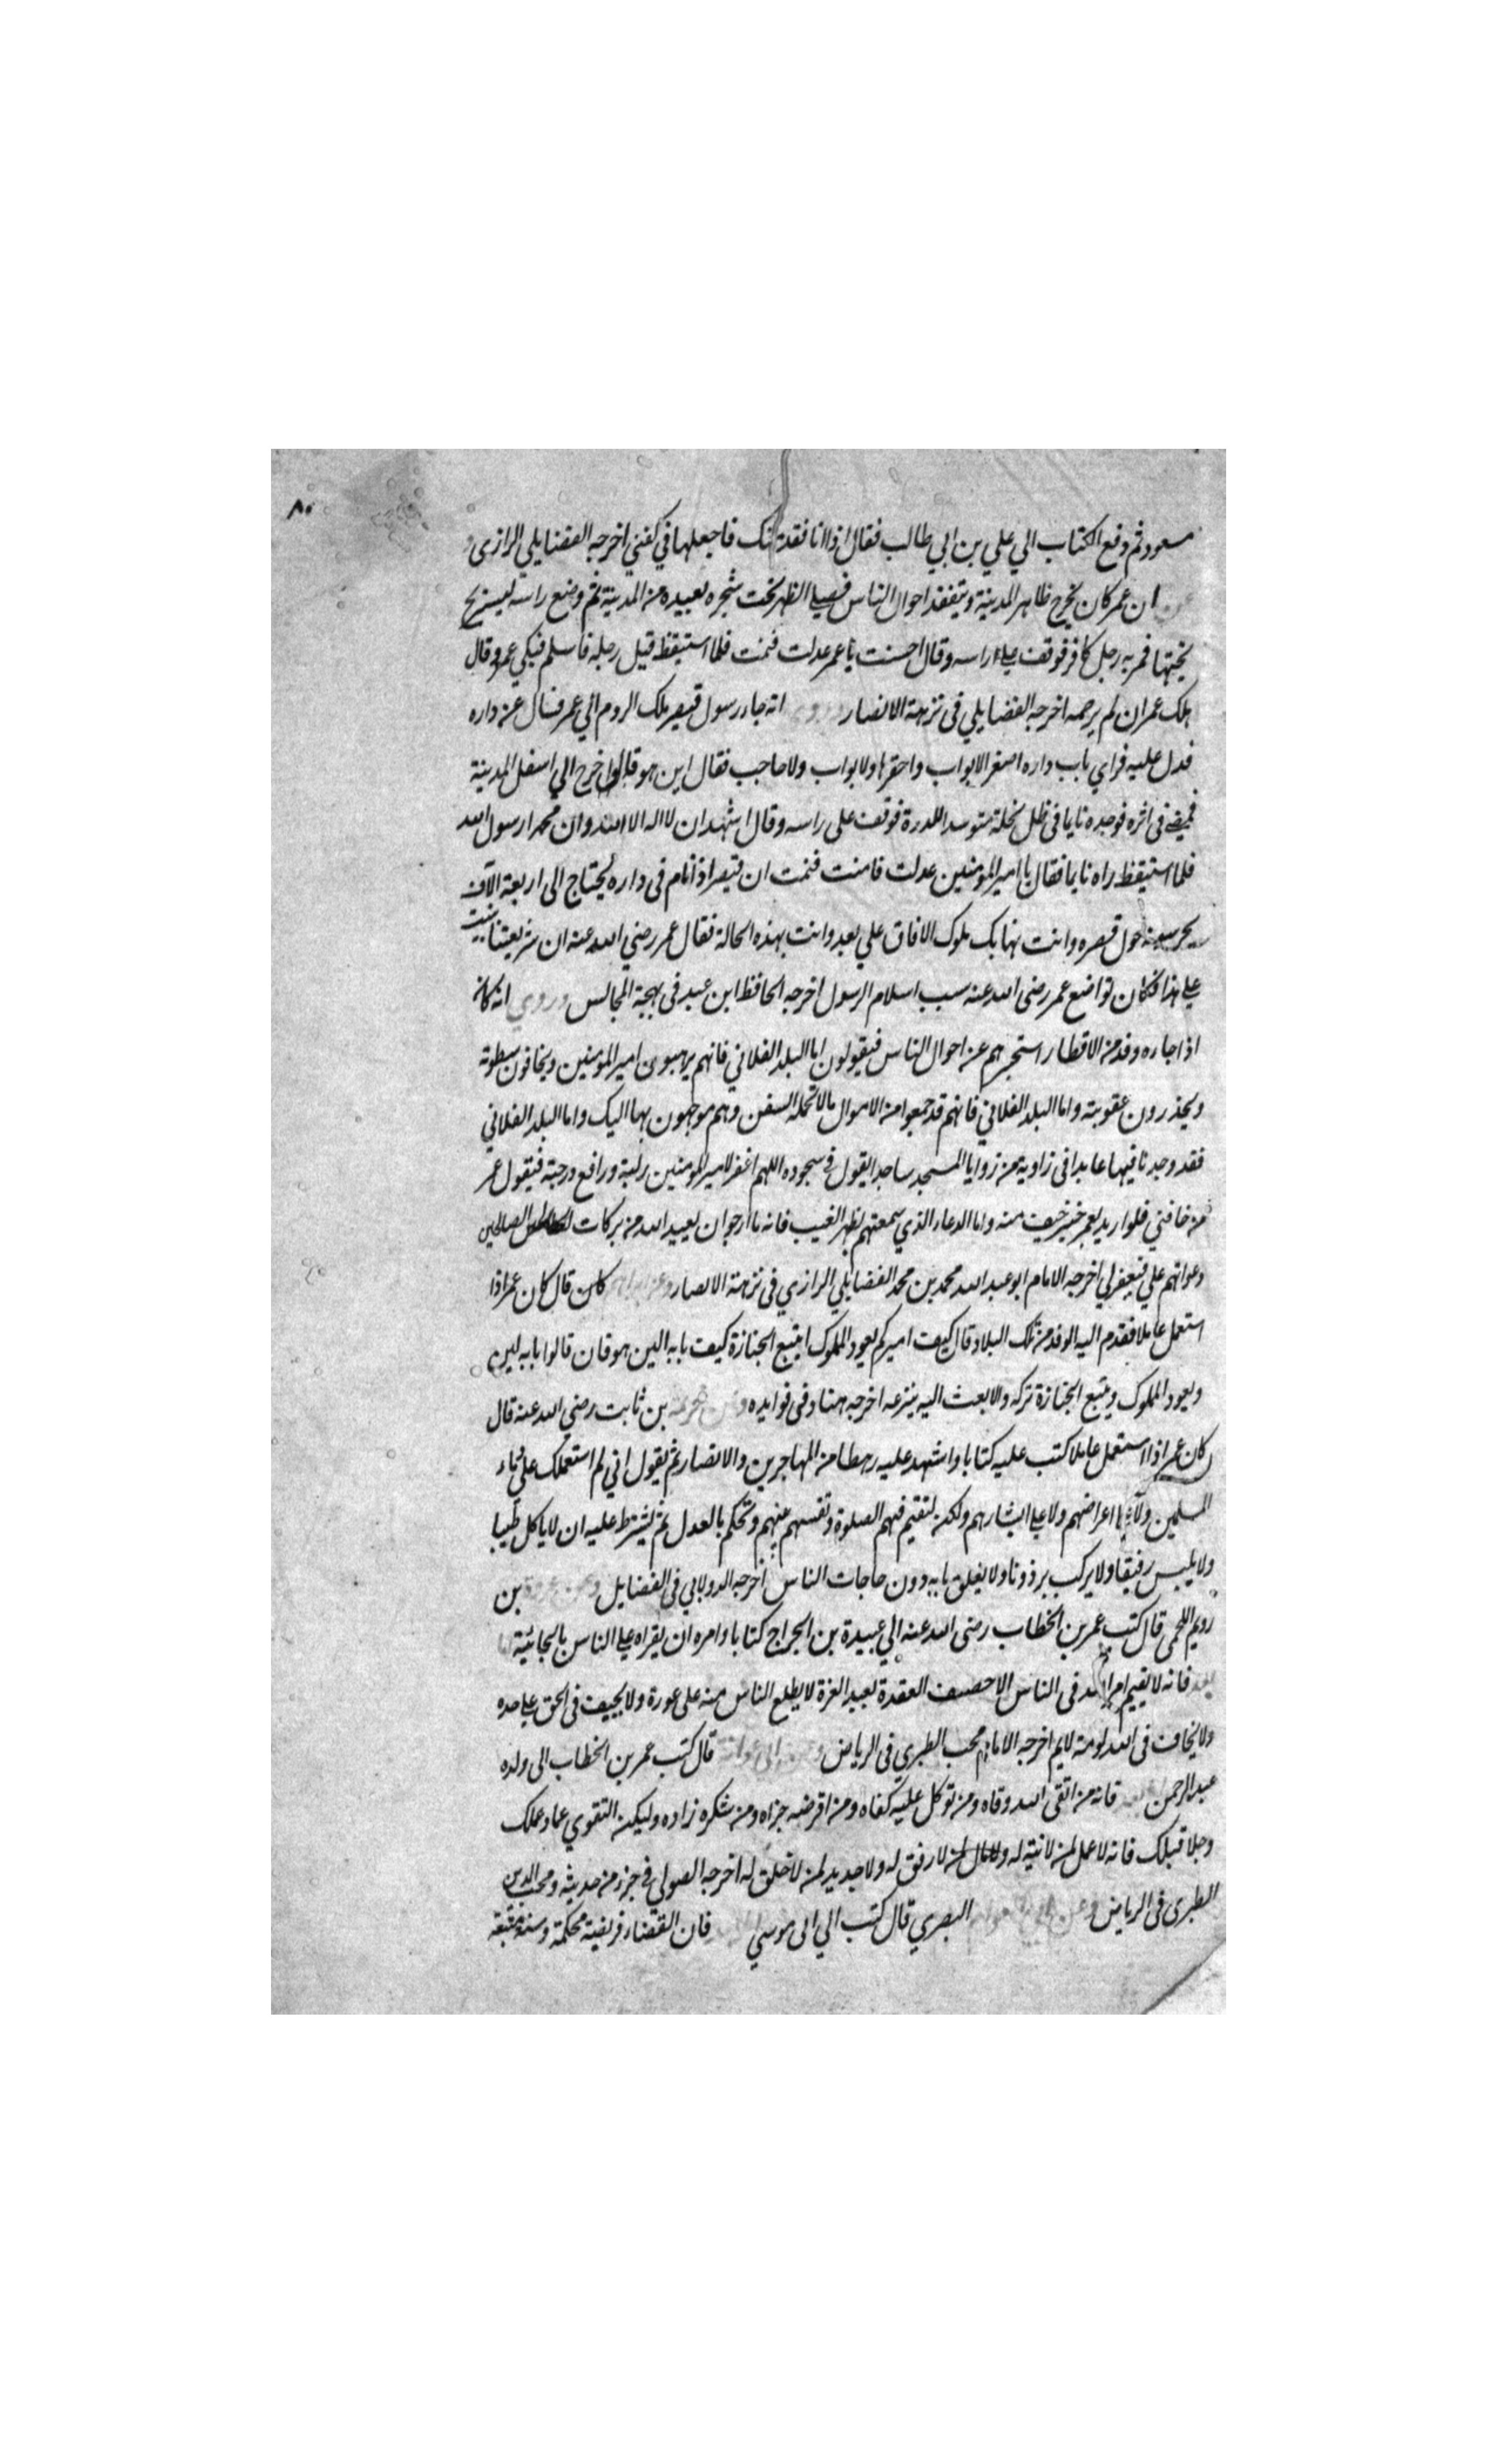 ٨٠
مسعود ثم دفع الكتاب الي علي بن ابي طالب فقال اذا انا فقدتك فاجعلها في كفني اخرجه الفضايلي الرازي و
عن ان عمر كان يخرج ظاهر المدينة ويتفقد احوال الناس فيصلي الظهر تحت شجره بعيده من المدينة ثم وضع راسه ليستريح
تحتها فمر به رجل كافر فوقف علي راسه وقال احسنت يا عمر عدلت فنمت فلما استيقظ قبل رجله فاسلم فبكي عمر وقال
هلك عمر ان لم يرحمه اخرجه الفضايلي في نزهة الانصار وروي انه جاء رسول قيصر ملك الروم الي عمر فسال عن داره
فدل عليه فراي باب داره اصغر الابواب واحقرها ولا بواب ولا حاجب فقال اين هو قالوا خرج الي اسفل المدينة
فمضي في اثره فوجده نايما في ظل نخلة متوسد اللدرة فوقف علي راسه وقال اشهد ان لا اله الا الله وان محمدا رسول الله
فلما استيقظ راه نايما فقال يا امير المومنين عدلت فامنت فنمت ان قيصر اذا نام في داره يحتاج الي اربعة الاف
يحرسونه حول قصره وانت تهابك ملوك الافاق علي بعد وانت بهذه الحالة فقال عمر رضي الله عنه ان شريعتنا بنيت
علي هذا فكان تواضع عمر رضي الله عنه سبب اسلام الرسول اخرجه الحافظ ابن عبد في بهجة المجالس وروي انه كان
اذا جاءه وفد من الاقطار استخبرهم عن احوال الناس فيقولون اما البلد الفلاني فانهم يرهبون امير المومنين ويخافون سطوته
ويحذرون عقوبته واما البلد الفلاني فانهم قد جمعوا من الاموال مالا تحمله السفن وهم موجهون بها اليك واما البلد الفلاني
فقد وجدنا فيها عابدا في زاوية من زوايا المسجد ساجدا يقول في سجوده اللهم اغفر لامير المومنين زلته ورافع درجته فيقول عمر
من خافني فلو اريد بعمر خير خيف منه واما الدعاء الذي سمعتهم بظهر الغيب فانه ما ارجو ان يعيد الله من بركات الصالحين
دعواتهم علي فيغفر لي اخرجه الامام ابو عبد الله محمد بن محمد الفضايلي الرازي في نزهة الانصار وعن ابراهيم كان قال كان عمر اذا
استعمل عاملا فقدم اليه الوفد من تلك البلاد قال كيف اميركم يعود المملوك ايتبع الجنازة كيف بابه الين هو فان قالوا بابه لين
ويعود المملوك ويتبع الجنازة تركه والا بعث اليه ينزعه اخرجه هناد في فوايده وعن خزيمة بن ثابت رضي الله عنه قال
كان عمر اذا استعمل عاملا كتب عليه كتابا واشهد عليه رهطا من المهاجرين والانصار ثم يقول اني لم استعملك علي دماء
المسلمين ولا علي اعراضهم ولا علي ابشارهم ولكن لتقيم فيهم الصلوة وتقسم عنهم وتحكم بالعدل ثم يشترط عليه ان لا ياكل طيبا
ولا يلبس رفيقا ولا يركب برذونا ولا يغلق بابه دون حاجات الناس اخرجه الدولابي في الفضايل وعن عروة بن
رويم اللخمي قال كتب عمر بن الخطاب رضي الله عنه الي عبيدة بن الجراح كتابا وامره ان يقراه علي الناس بالجابية اما
بعد فانه لا يقيم امر الله في الناس الا حصيف العقدة بعيد الغزة لا يطلع الناس منه علي عورة ولا يحيف في الحق علي حده
ولا يخاف في الله لومة لايم اخرجه الامام محب الطبري في الرياض وعن ابي عوانة قال كتب عمر بن الخطاب الي ولده
عبد الرحمن اما بعد فانه من اتقي الله وقاه ومن توكل عليه كفاه ومن اقرضه جزاه ومن شكره زاده وليكن التقوي عماد عملك
وجلا قبلك فانه لا عمل لمن لا نية له ولا مال لمن لا رفق له ولا جديد لمن لا خلق له اخرجه الصولي في جزء من حديثه ومحب الدين
الطبري في الرياض وعن ابي عوانة البصري قال كتب الي ابي موسي اما بعد فان القضاء فريضة محكمة وسنة متبعة